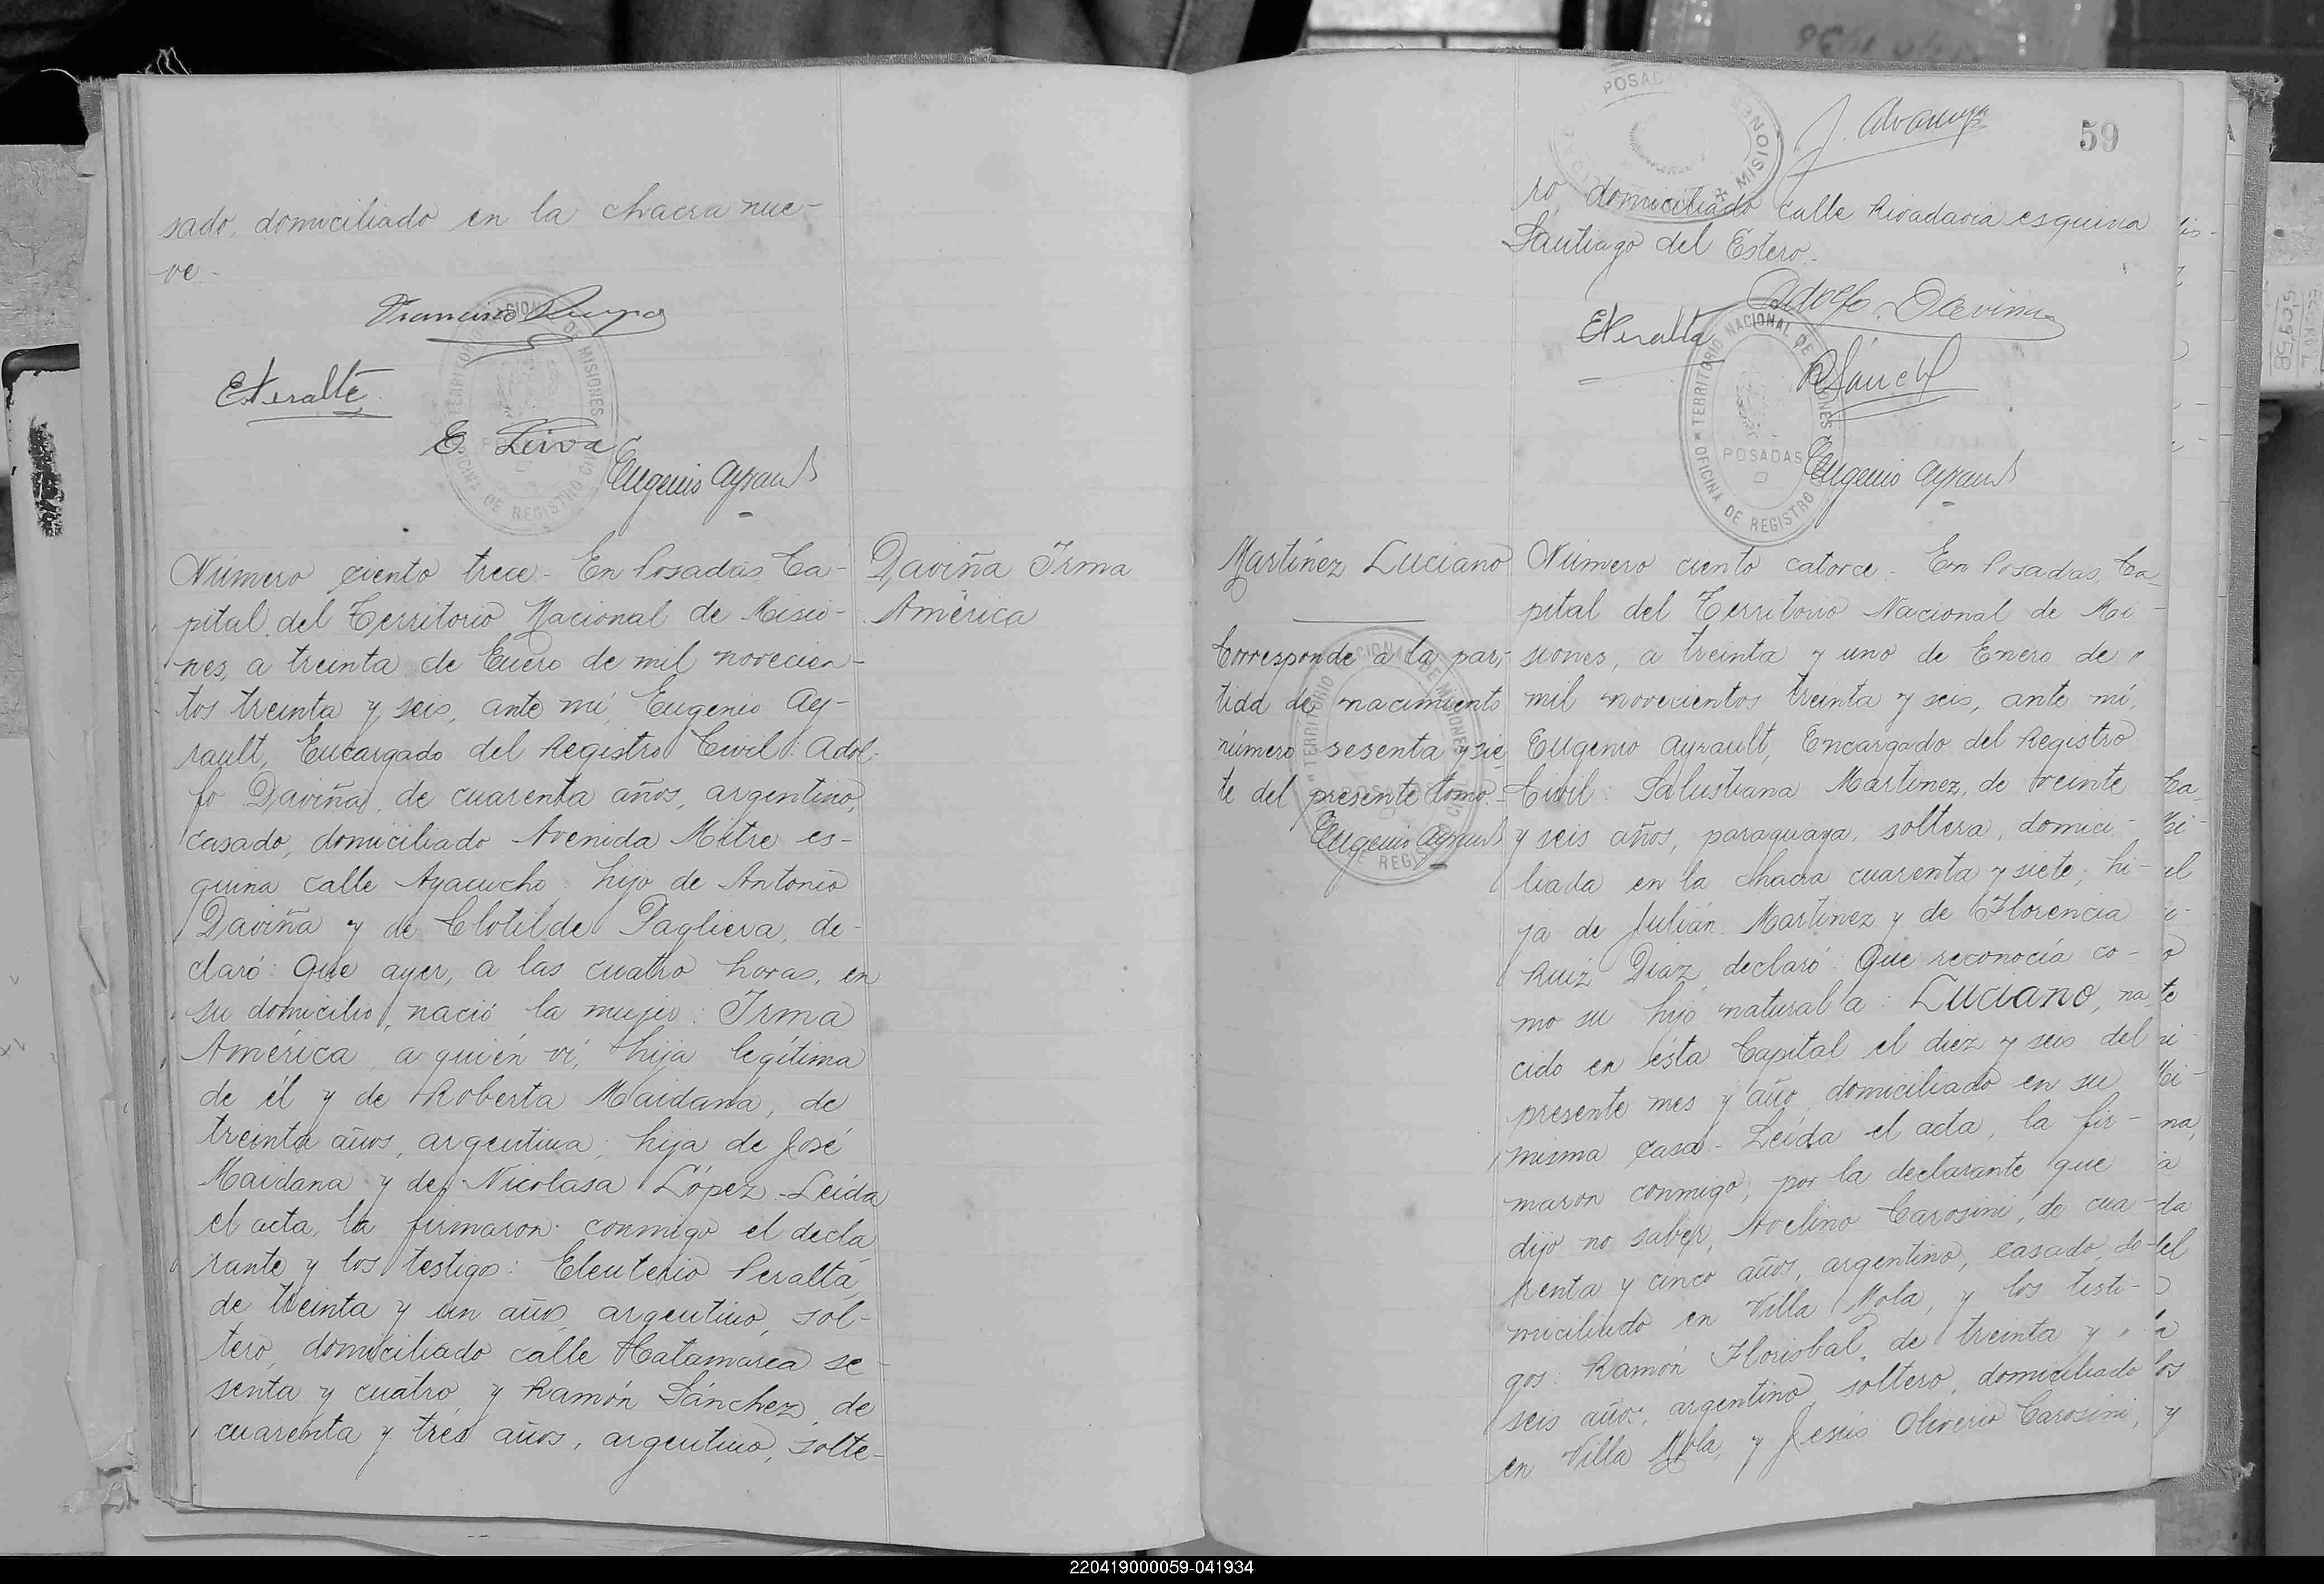 sado, domiciliado en la chacra nue-
ve.-
E. Peralta
E. Leiva
Eugenio Ayrault
Daviña Irma
América
Número ciento trece.- En Posadas, Ca-
pital del Territorio Nacional de Misio-
nes, a treinta de Enero de mil novecien-
tos treinta y seis, ante mí, Eugenio Ay-
rault, Encargado del Registro Civil: Adol-
fo Daviña, de cuarenta años, argentino,
casado, domiciliado Avenida Mitre es-
quina calle Ayacucho; hijo de Antonio
Daviña y de Clotilde Pagliera, de-
claró: Que ayer, a las cuatro horas, en
su domicilio, nació la mujer: Irma
América, a quién ví, hija legítima
de él y de Roberta Maidana, de
treinta años, argentina; hija de José
Maidana y de Nicolasa López.- Leída
el acta, la firmaron conmigo el decla
rante y los testigos: Eleuterio Peralta,
de treinta y un años, argentino, sol-
tero, domiciliado calle Catamarca se-
senta y cuatro, y Ramón Sánchez, de
cuarenta y tres años, argentino, solte-
59
ro, domiciliado calle Rivadavia esquina
Santiago del Estero.-
Adolfo Daviña
E. Peralta
R Sánchez
TERRITORIO NACIONAL DE MISIONES
POSADAS
OFICINA DE REGISTRO CIVIL
Eugenio Ayrault
Martínez Luciano
Corresponde a la par-
tida de nacimiento
número sesenta y sie
te del presente tomo.-
Eugenio Ayrault
Número ciento catorce.- En Posadas, Ca
pital del Territorio Nacional de Mi-
siones, a treinta y uno de Enero de
mil novecientos treinta y seis, ante mí,
Eugenio Ayrault, Encargado del Registro
Civil: Salustiana Martínez, de veinte
y seis años, paraguaya, soltera, domici-
liada en la chacra cuarenta y siete; hi-
ja de Julián Martínez y de Florencia
Ruiz Diaz, declaró: Que reconocía co-
mo su hijo natural a: Luciano, na
cido en ésta Capital el diez y seis del
presente mes y año, domiciliado en su
misma casa.- Leída el acta, la fir-
maron conmigo, por la declarante que
dijo no saber, Avelino Carosini, de cua-
renta y cinco años, argentino, casado, do-
miciliado en Villa Mola, y los testi-
gos: Ramón Florisbal, de treinta y
seis años, argentino, soltero, domiciliado
en Villa Mola, y Jesús Oliverio Carosini,
220419000059-041934